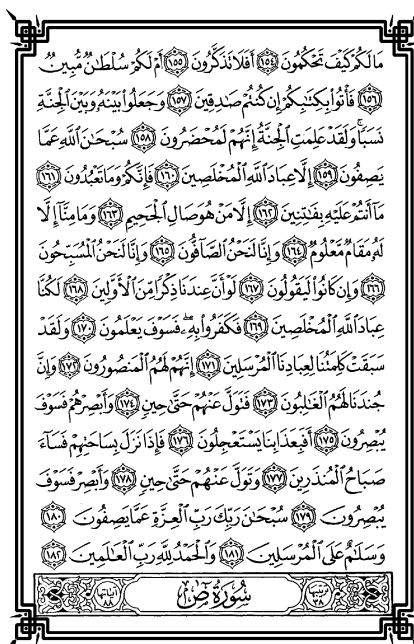 مَا لَكُمْ كَيْفَ تَحْكُمُونَ ١٥٤ أَفَلَا تَذَكَّرُونَ ١٥٥ أَمْ لَكُمْ سُلْطَٰنٌ مُّبِينٌ
١٥٦ فَأْتُوا۟ بِكِتَٰبِكُمْ إِن كُنتُمْ صَٰدِقِينَ ١٥٧ وَجَعَلُوا۟ بَيْنَهُۥ وَبَيْنَ ٱلْجِنَّةِ
نَسَبًا ۚ وَلَقَدْ عَلِمَتِ ٱلْجِنَّةُ إِنَّهُمْ لَمُحْضَرُونَ ١٥٨ سُبْحَٰنَ ٱللَّهِ عَمَّا
يَصِفُونَ ١٥٩ إِلَّا عِبَادَ ٱللَّهِ ٱلْمُخْلَصِينَ ١٦٠ فَإِنَّكُمْ وَمَا تَعْبُدُونَ ١٦١
مَآ أَنتُمْ عَلَيْهِ بِفَٰتِنِينَ ١٦٢ إِلَّا مَنْ هُوَ صَالِ ٱلْجَحِيمِ ١٦٣ وَمَا مِنَّآ إِلَّا
لَهُۥ مَقَامٌ مَّعْلُومٌ ١٦٤ وَإِنَّا لَنَحْنُ ٱلصَّآفُّونَ ١٦٥ وَإِنَّا لَنَحْنُ ٱلْمُسَبِّحُونَ
١٦٦ وَإِن كَانُوا۟ لَيَقُولُونَ ١٦٧ لَوْ أَنَّ عِندَنَا ذِكْرًا مِّنَ ٱلْأَوَّلِينَ ١٦٨ لَكُنَّا
عِبَادَ ٱللَّهِ ٱلْمُخْلَصِينَ ١٦٩ فَكَفَرُوا۟ بِهِۦ ۖ فَسَوْفَ يَعْلَمُونَ ١٧٠ وَلَقَدْ
سَبَقَتْ كَلِمَتُنَا لِعِبَادِنَا ٱلْمُرْسَلِينَ ١٧١ إِنَّهُمْ لَهُمُ ٱلْمَنصُورُونَ ١٧٢ وَإِنَّ
جُندَنَا لَهُمُ ٱلْغَٰلِبُونَ ١٧٣ فَتَوَلَّ عَنْهُمْ حَتَّىٰ حِينٍ ١٧٤ وَأَبْصِرْهُمْ فَسَوْفَ
يُبْصِرُونَ ١٧٥ أَفَبِعَذَابِنَا يَسْتَعْجِلُونَ ١٧٦ فَإِذَا نَزَلَ بِسَاحَتِهِمْ فَسَآءَ
صَبَاحُ ٱلْمُنذَرِينَ ١٧٧ وَتَوَلَّ عَنْهُمْ حَتَّىٰ حِينٍ ١٧٨ وَأَبْصِرْ فَسَوْفَ
يُبْصِرُونَ ١٧٩ سُبْحَٰنَ رَبِّكَ رَبِّ ٱلْعِزَّةِ عَمَّا يَصِفُونَ ١٨٠
وَسَلَٰمٌ عَلَى ٱلْمُرْسَلِينَ ١٨١ وَٱلْحَمْدُ لِلَّهِ رَبِّ ٱلْعَٰلَمِينَ ١٨٢
ترتيبها ٣٨ سُورَةُ صٓ آياتها ٨٨